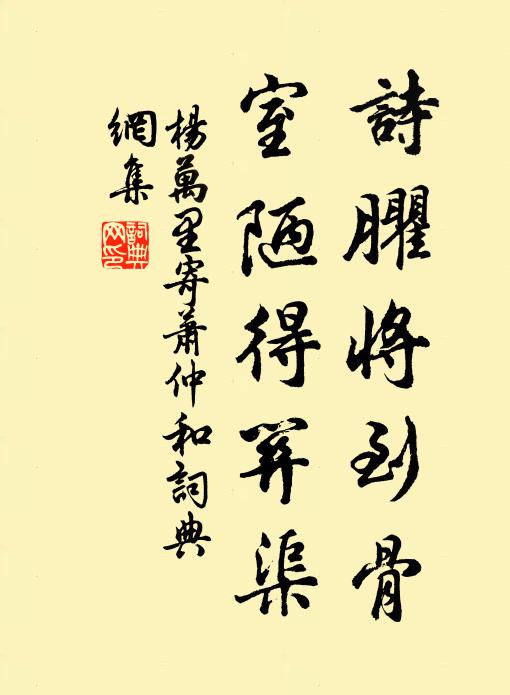 詩臞將到骨
室陋得渠
楊萬里寄蕭仲和詞典
網集
詞典
网印